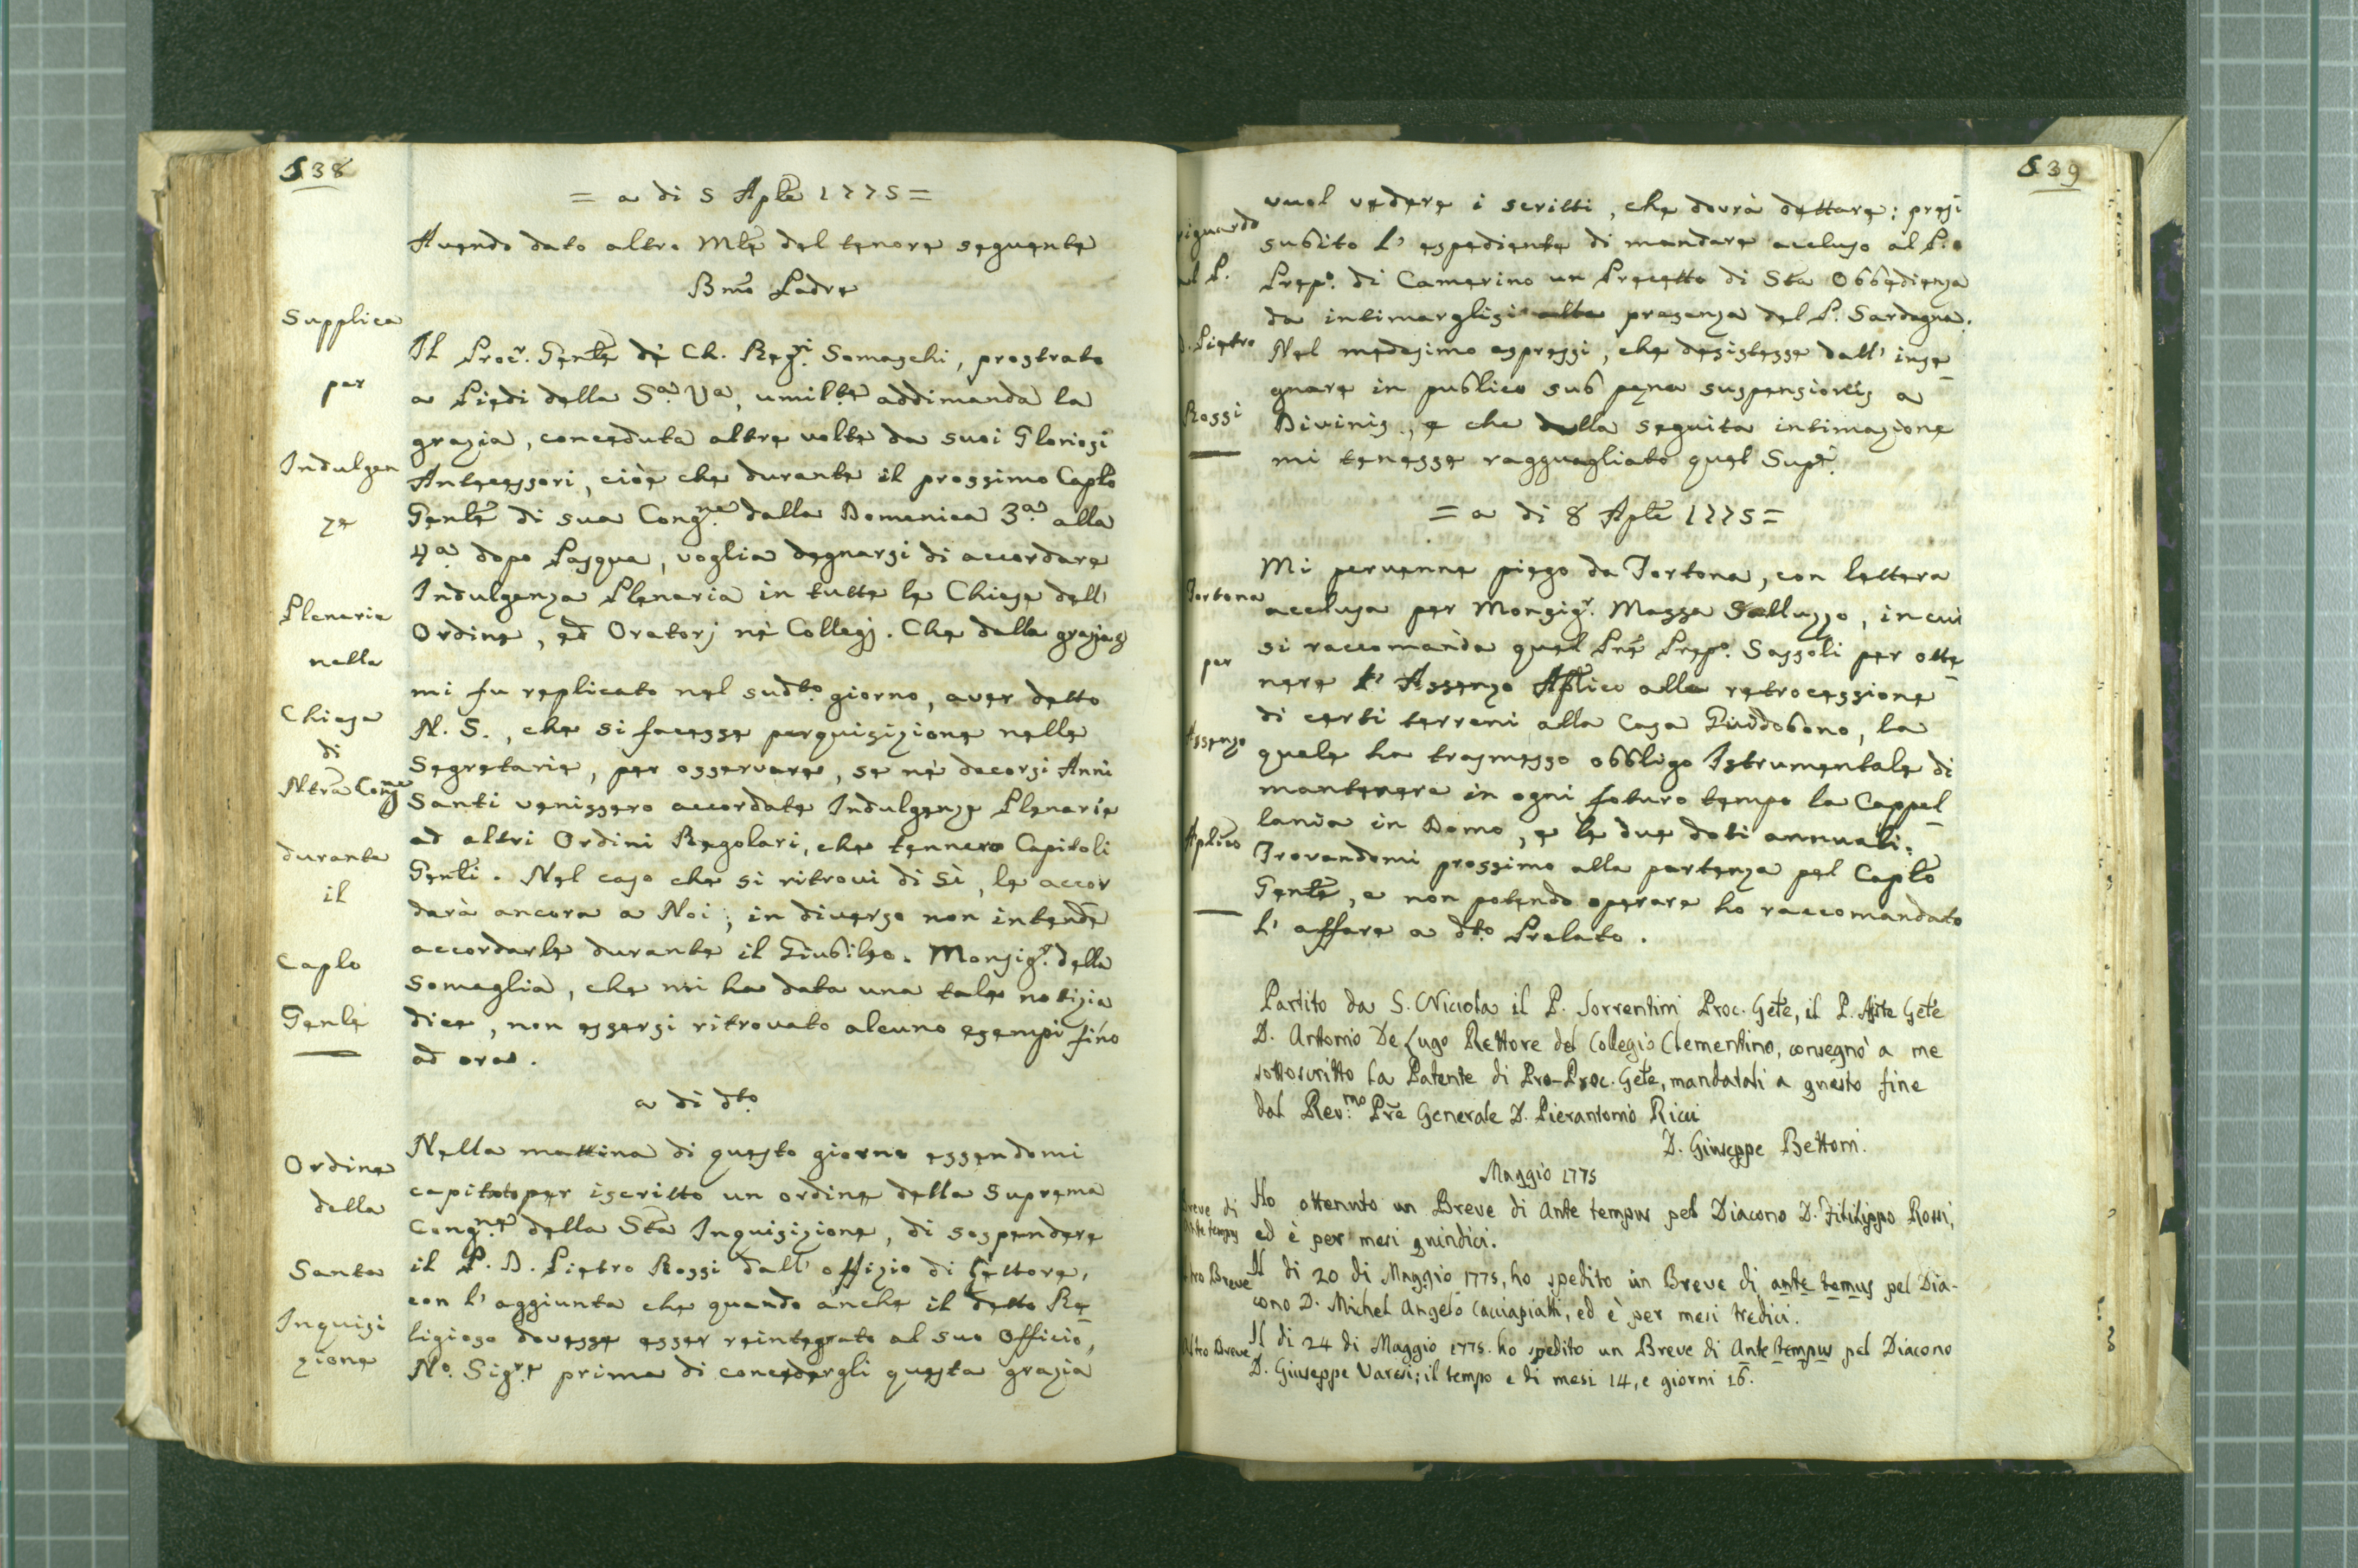 538
= a di 5 Aple 1775 =
Avendo dato altro Mle del tenore seguente
Bmo Padre
Supplica
per
Indulgen
ze
Plenarie
nelle
Chiese
di
Ntra Congne
durante
il
Caplo
Genle
Il Procr. Genle dè Ch. Regri Somaschi, prostrato
a Piedi della Sa. Va, umilte addimanda la
grazia, conceduta altre volte da suoi Gloriosi
Antecessori, cioè che durante il prossimo Caplo
Genle di sua Congne dalla Domenica 3a. alla
4a. dopo Pasqua, voglia degnarsi di accordare
Indulgenza Plenaria in tutte le Chiese dell'
Ordine, ed Oratorj nè Collegj. Che della grazia &
mi fu replicato nel sudto. giorno, aver detto
N. S., che si facesse perquisizione nelle
Segretarie, per osservare, se nè decorsi Anni
Santi venissero accordate Indulgenze Plenarie
ad altri Ordini Regolari, che tennero Capitoli
Genli. Nel caso che si ritrovi di sì, le accor
darà ancora a Noi; in diverso non intende
accordarle durante il Giubileo. Monsigr. della
Somaglia, che mi ha data una tale notizia
dice, non essersi ritrovato alcuno esempi fino
ad ora.
a di dto.
Ordine
della
Santa
Inquisi
zione
Nella mattina di questo giorno essendomi
capitato per iscritto un ordine della Suprema
Congne della Sta Inquisizione, di sospendere
il P. D. Pietro Rossi dall' offizio di Lettore,
con l' aggiunta che quando anche il detto Re
ligioso dovesse esser reintegrato al suo Officio,
No. Sigre prima di concedergli questa grazia
539
riguardo
al P.
D. Pietro
Rossi
vuol vedere i scritti, che dovrà dettare: presi
subito l' espediente di mandare accluso al P.
Prepo. di Camerino un Precetto di Sta Obbedienza
da intimarglisi alla presenza del P. Sardagna.
Nel medesimo espressi, che desistesse dall' inse
gnare in publico sub pena suspensionis a
Divinis, e che della seguita intimazione
mi tenesse ragguagliato quel Supe.
= a di 8 Aple 1775 =
Tortona
per
Assenso
Aplico
Mi pervenne piego da Tortona, con lettera
acclusa per Monsigr. Massa Salluzzo, in cui
si raccomanda quel Pre Prepo. Sassoli per otte
nere l' Assenso Aplico alla retrocessione
di certi terreni alla Casa Guidobono, la
quale ha trasmesso obbligo Istrumentale di
mantenere in ogni futuro tempo la Cappel
lania in Domo, e le due doti annuali.
Trovandomi prossimo alla partenza pel Caplo
Genle, e non potendo operare ho raccomandato
l' affare a dto. Prelato.
Partito da S. Nicola il P. Sorrentini Proc. Gele, il P. Asste Gele
D. Antonio De Lugo Rettore del Collegio Clementino, consegnò a me
sottoscritto la Patente di Pro-Proc. Gele, mandatali a questo fine
dal Rev.mo Pre Generale D. Pierantonio Ricci
D. Giuseppe Bettoni.
Maggio 1775
Breve di
Ante tempus
Ho ottenuto un Breve di Ante tempus pel Diacono D. Fililippo Rossi,
ed è per mesi quindici.
Altro Breve
Il dì 20 di Maggio 1775, ho spedito un Breve di ante temus pel Dia-
cono D. Michel Angelo Cacciapiatti, ed è per mesi tredici.
Altro Breve
Il dì 24 di Maggio 1775. ho spedito un Breve di Ante tempus pel Diacono
D. Giuseppe Varesi; il tempo e di mesi 14, e giorni 16.